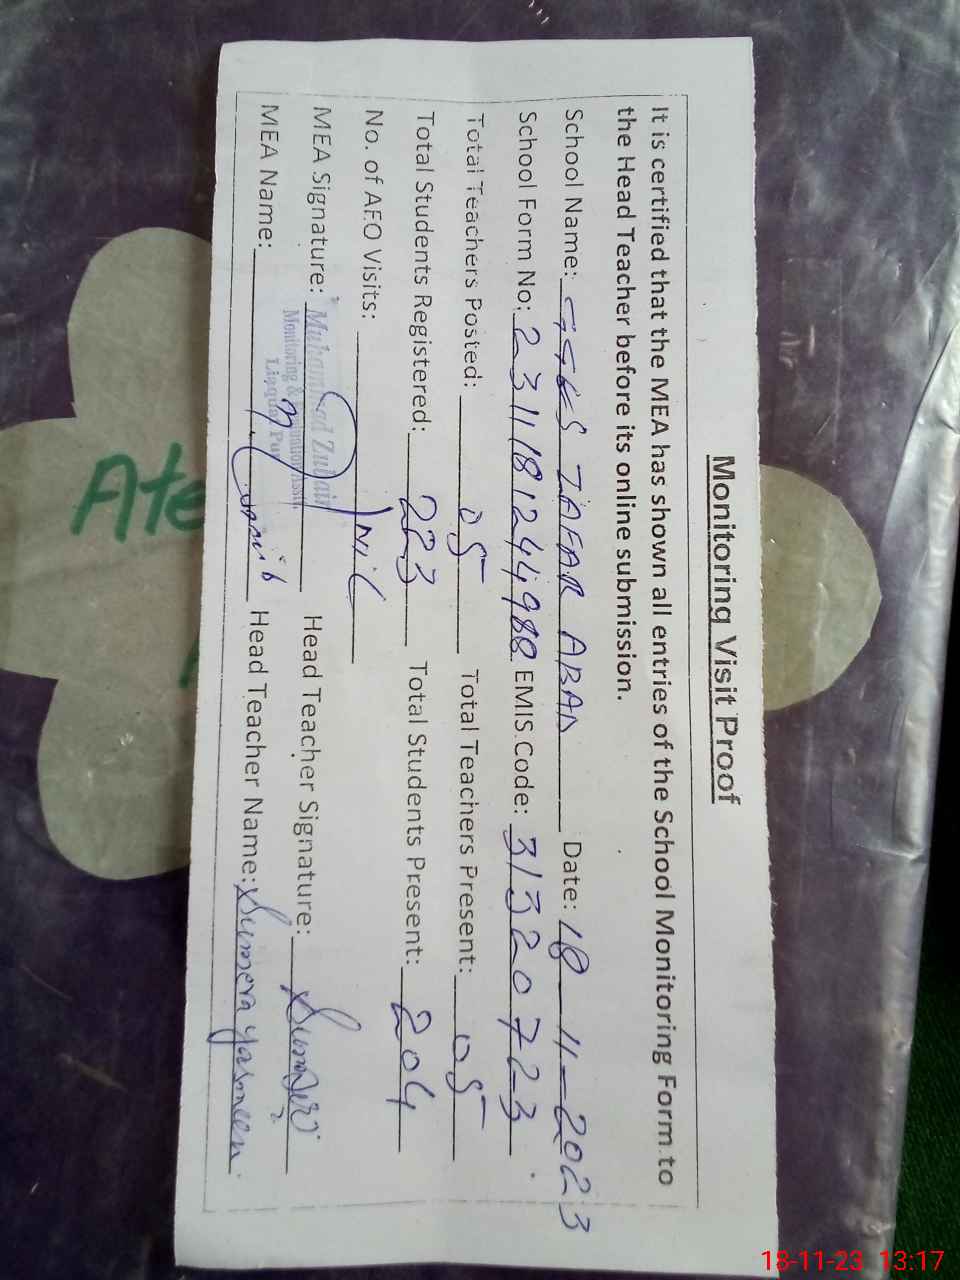 Monitoring Visit Proof
It is certified that the MEA has shown all entries of the School Monitoring Form to
the Head Teacher before its online submission.
School Name: GGES ZAFAR ABAD Date: 18-11-2023
School Form No: 2311181244988 EMIS Code: 31320723
Total Teachers Posted: 05 Total Teachers Present: 05
Total Students Registered: 223 Total Students Present: 204
No. of AEO Visits: Nil
MEA Signature: Head Teacher Signature:
Muhammad Zubair
Monitoring &
Liaquat Pur
MEA Name: Head Teacher Name: Sumera yasmeen
Ate
18-11-23 13:17